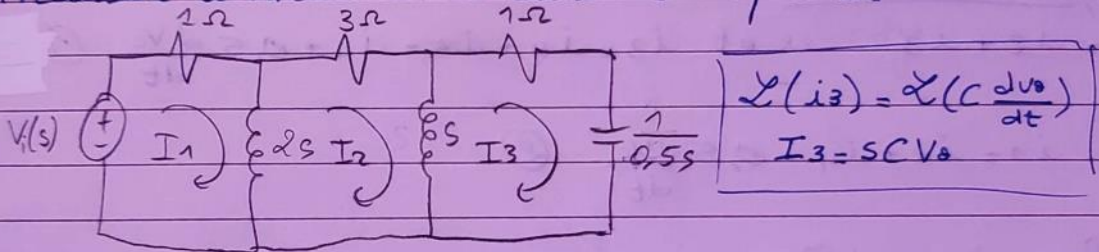 1Ω 3Ω 1Ω
Vi(s) + - I1 2s I2 s I3 1/0,5s
ℒ(i3) = ℒ(C dv0/dt)
I3 = sCV0